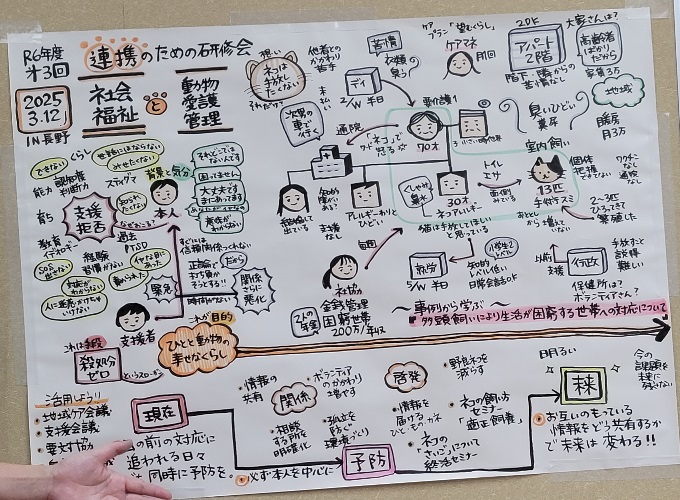 R6年度
第3回
連携のための研修会
2025
3.12
IN長野
社会
福祉
と
動物
愛護
管理
想い
ネコは
手放し
たくない
それだけ?
他者との
かかわり
苦手
苦情
衣類の
臭い
ケア
プラン「望むくらし」
ケアマネ
月1回
2DK
アパート
2階
階下・隣からの
苦情なし
大家さんは?
高齢者
ばかりだから
家賃3万
地域
臭いひどい
糞尿
室内飼い
月3万
デイ
2/W 半日
未払い
次男の
車で
行く
通院
要介護1
70才
「ネコ」で
怒る
くしゃみ
鼻水
30才
ネコアレルギー
猫は手放してほしい
と思っている
トイレ
エサ
面倒
みている
13匹
手放すズミ
個体
把握
できない
ワクチン
なし
通院
なし
2〜3匹
ひろってきて
繁殖した
おとなしい
結婚して
出ている
知的
障がい
ある?
支援
なし
アレルギー
ひどい
毎週
社協
金銭管理
困窮世帯
200万/年収
2人の
年金
就労
5/W 平日
小学生レベル
知的
レベル低い
日常会話OK
以前
支援
行政
手放すこと
説得
難しい
保健所は?
ボランティアさん?
〜事例から学ぶ〜
多頭飼いにより生活が困窮する世帯への対応について
できない
くらし
世話にはならない
みせたくない
能力
認知度
判断力
スティグマ
背景と気分
それどこじゃ
ないんです
困ってません
大丈夫です
まにあってます
知られたくない
本人
育ち
支援
拒否
などおこる?
過去
PTSD
教育
イデオロギー
経験
習慣がない
SOS
出せない
イヤな目に
あった
人に迷惑かけちゃ
いけない
すぐには
信頼関係つくれない
正論で
打ち負か
そうとする!!
だから
時間がない
緊急
関係
さらに
悪化
支援者
これは手段
殺処分
ゼロ
というスローガン
これが目的
ひとと動物の
幸せなくらし
活用しよう!!
・地域ケア会議
・支援会議
・要対協
現在
の前の対応に
追われる日々
同時に予防を。
・情報の
共有
関係
・ボランティア
のかかわり
立場です
・相談
する所を
明確化
・孤立を
防ぐ
環境づくり
◎必ず本人を中心に
予防
啓発
・野良ネコを
減らす
・情報を
届ける
ひと・もの・カネ
・ネコの飼い方
セミナー
「適正飼養」
・「ネコの
さいご」について
終活セミナー
明るい
未来
今の
課題を
未来に
残さない
◎お互いのもっている
情報をどう共有するか
で未来は変わる!!